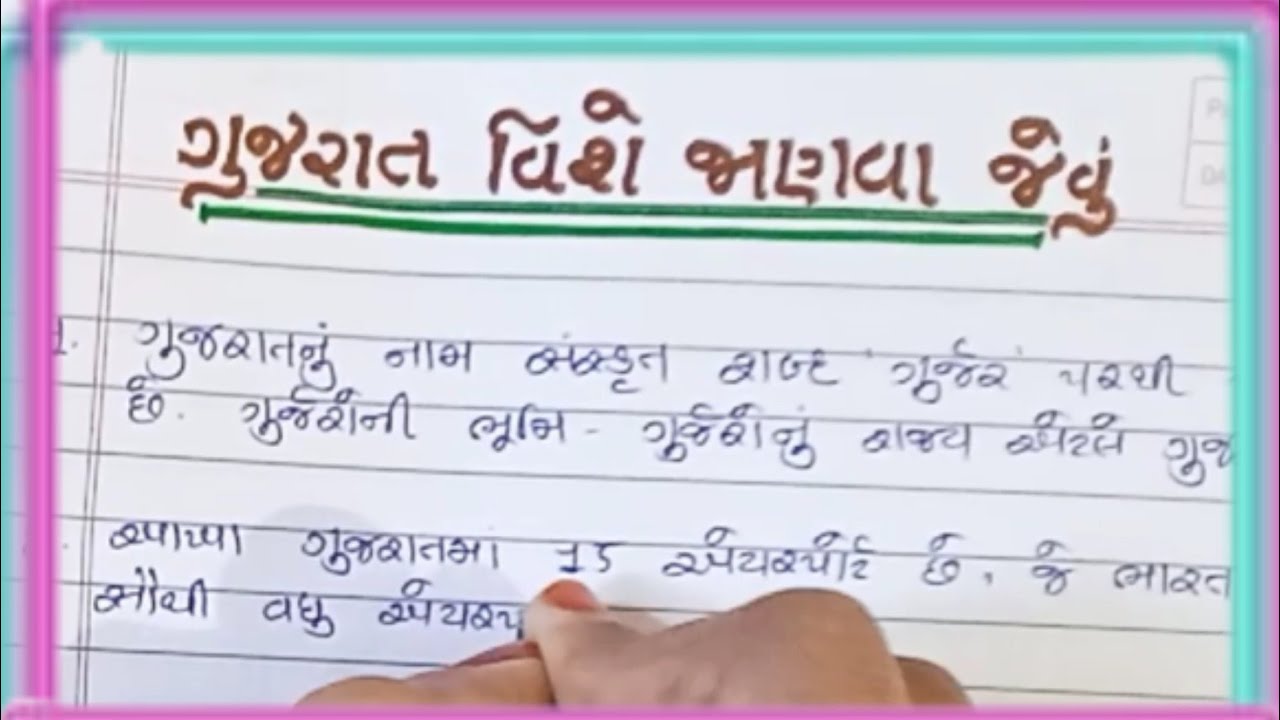 ગુજરાત વિશે જાણવા જેવું
ગુજરાતનું નામ સંસ્કૃત શબ્દ ગુર્જર પરથી
છે. ગુર્જરોની ભૂમિ - ગુર્જરોનું રાજ્ય એટલે ગુજ
આખા ગુજરાતમાં 15 એયરપોર્ટ છે, જે ભારત
સૌથી વધુ એયરપ